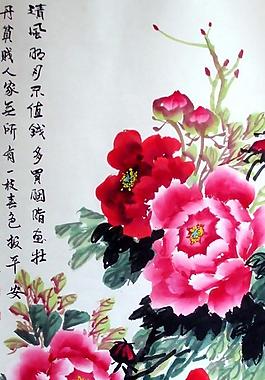 清风明月不值钱多买胭脂画牡
丹莫贱人家无所有一枝春色报平安